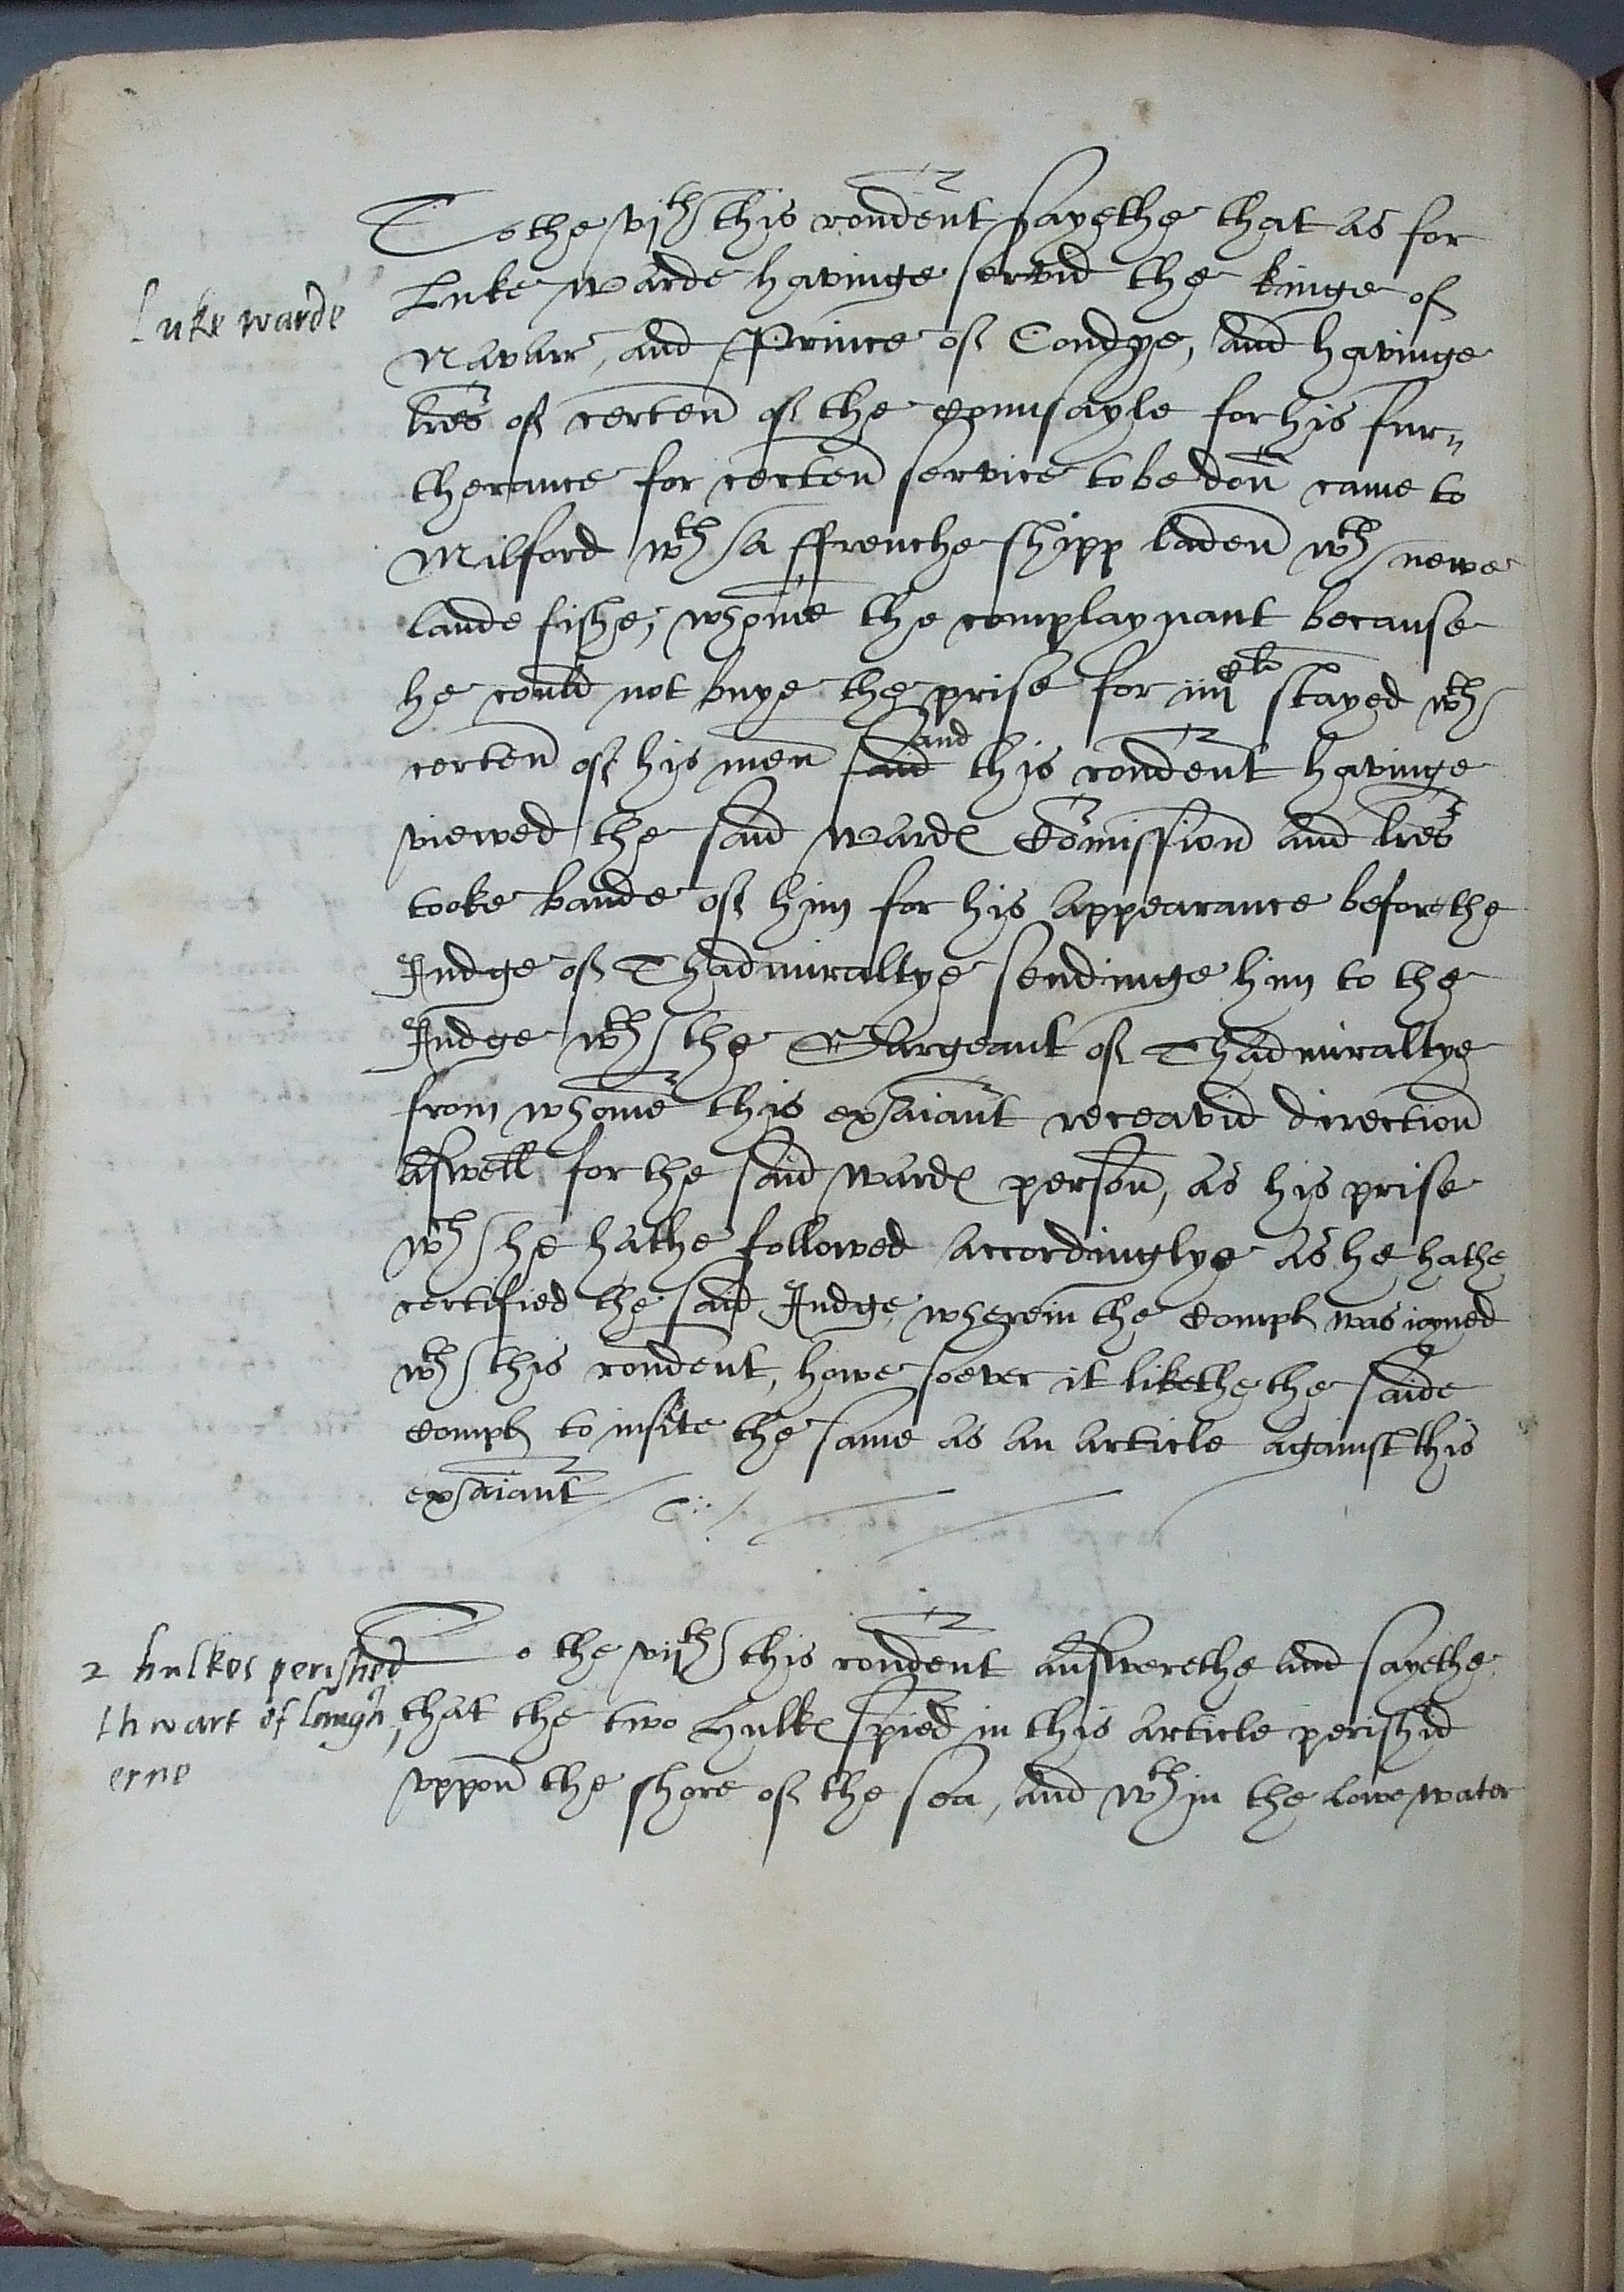 To the vjth this rondent sayethe that as for
Luke warde
Luke warde havinge servid the kinge of
Navarr, and Prince of Condye, and havinge
lres of certen of the counsayle for his fur=
therance for certen service to be don came to
Milford wth a ffrenche shipp laden wth newe
lande fishe, whome the complaynant because
he could not buye the prise for iiijcli stayed wth
certen of his men said and this rondent havinge
viewed the said wardes Comission and lres
tooke bande of him for his appearance before the
Judge of Thadmiraltye sendinge him to the
Judge wth the Sargeant of Thadmiraltye
from whome this exaiant receavid direction
aswell for the said wardes person, as his prise
wch he hathe followed accordinglye as he hathe
certified the said Judge, wherein the compl was ioyned
wth this rondent, howe soever it likethe the saide
compl to insite the same as an article against this
exaiant
2 hulkes perished
thwart of Lough
erne
To the vijth this rondent answerethe and sayethe
that the two Hulkes spied in this article perishid
vppon the shore of the sea, and wthin the lowe water